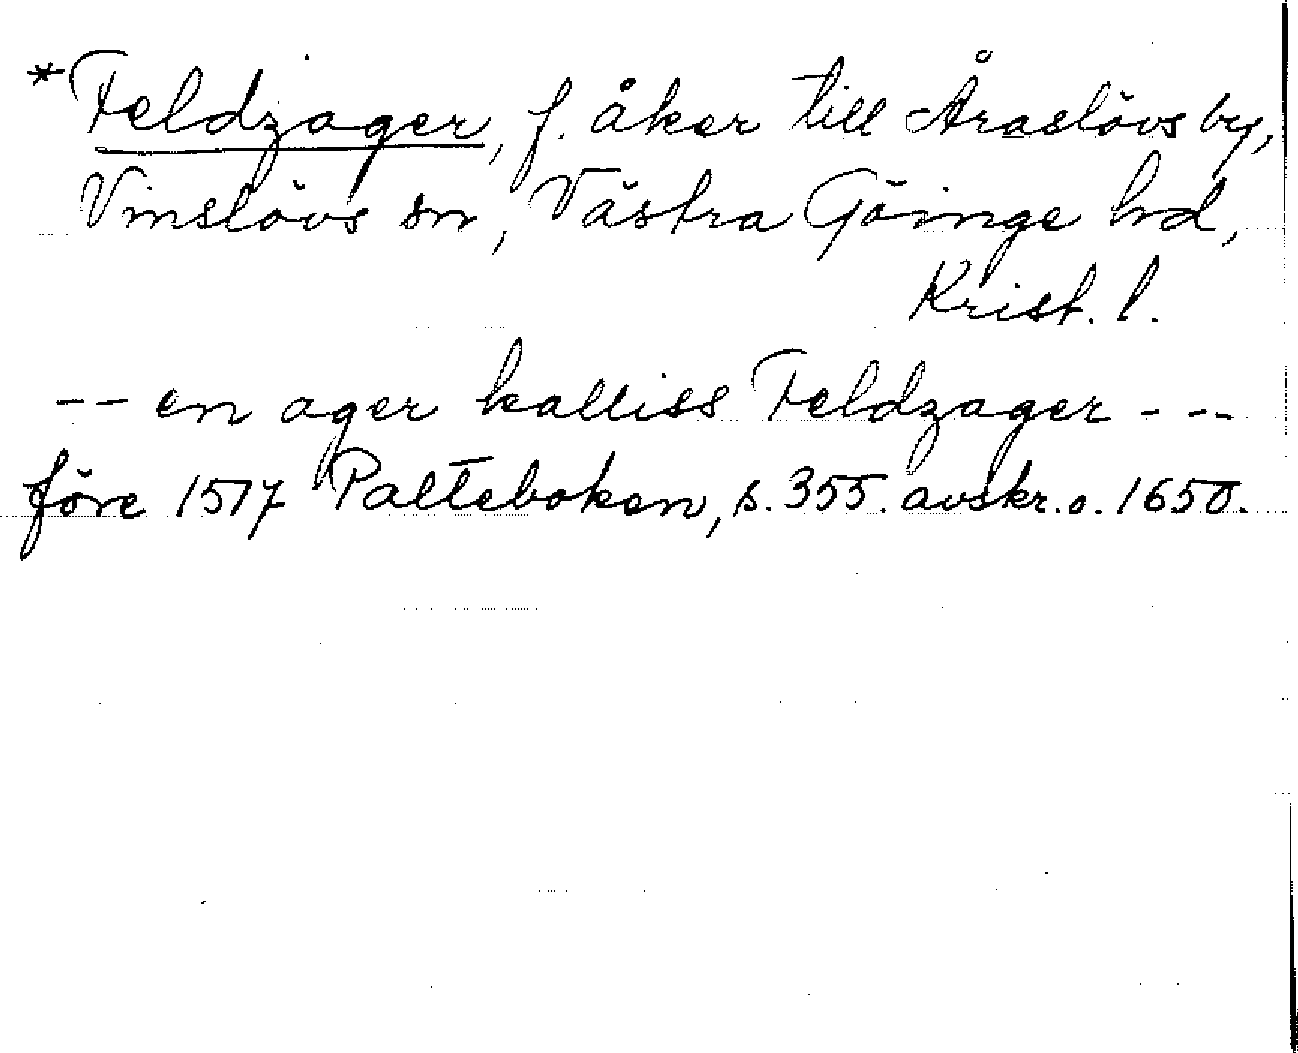 *Feldzager, f. åker till Åraslövs by,
Vinslövs sn, Västra Göinge hd,
Krist. l.
-- en ager kalliss Feldzager ---
före 1517 Palteboken, s. 355. avskr. o. 1650.